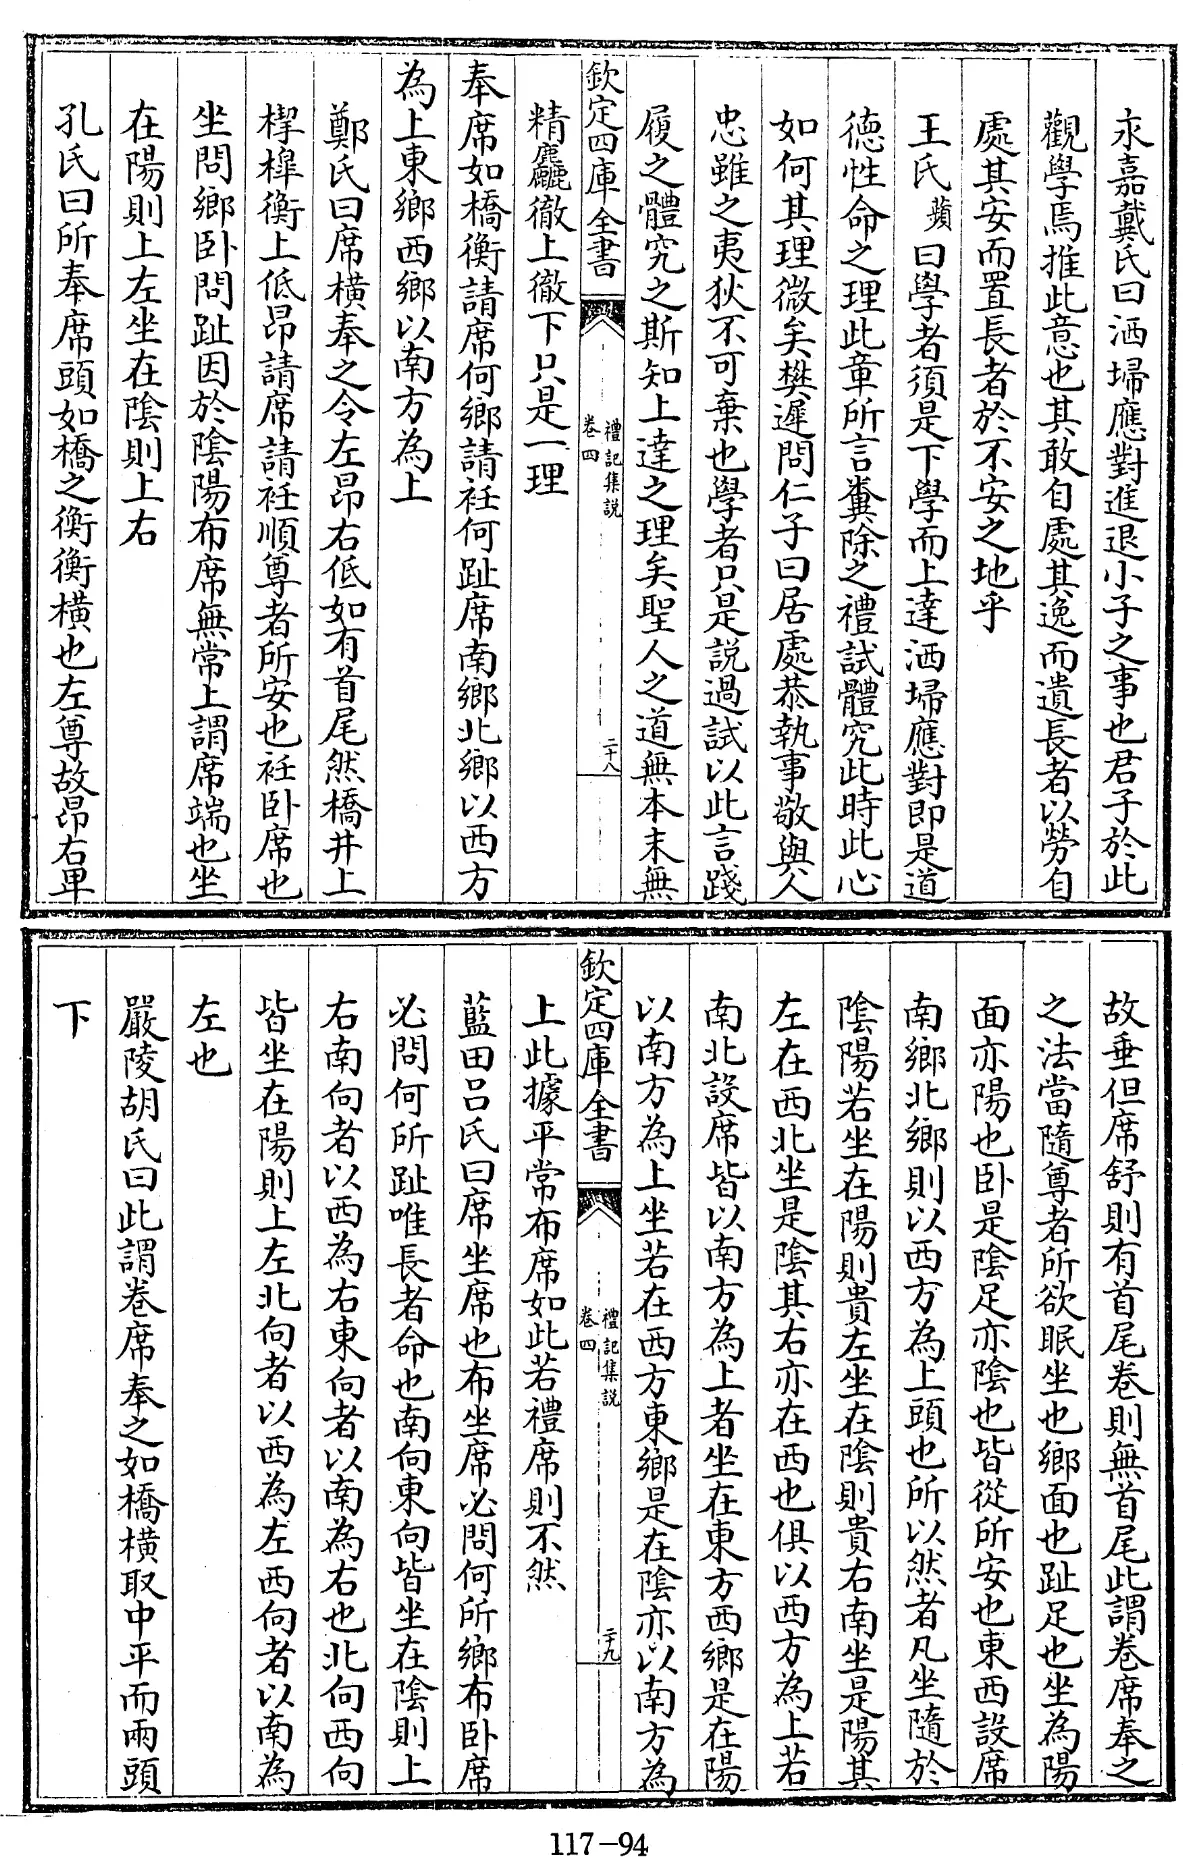 永嘉戴氏曰洒埽應對進退小子之事也君子於此
觀學焉推此意也其敢自處其逸而遺長者以勞自
處其安而置長者於不安之地乎
王氏蘋曰學者須是下學而上達洒埽應對即是道
德性命之理此章所言糞除之禮試體究此時此心
如何其理微矣樊遲問仁子曰居處恭執事敬與人
忠雖之夷狄不可棄也學者只是説過試以此言踐
履之體究之斯知上達之理矣聖人之道無本末無
欽定四庫全書
禮記集説
卷四
二十八
精麤徹上徹下只是一理
奉席如橋衡請席何鄉請衽何趾席南鄉北鄉以西方
為上東鄉西鄉以南方為上
鄭氏曰席横奉之令左昂右低如有首尾然橋井上
桿橰衡上低昂請席請衽順尊者所安也衽卧席也
坐問鄉卧問趾因於陰陽布席無常上謂席端也坐
在陽則上左坐在陰則上右
孔氏曰所奉席頭如橋之衡衡横也左尊故昂右卑
故垂但席舒則有首尾卷則無首尾此謂卷席奉之
之法當隨尊者所欲眠坐也鄉面也趾足也坐為陽
面亦陽也卧是陰足亦陰也皆從所安也東西設席
南鄉北鄉則以西方為上頭也所以然者凡坐隨於
陰陽若坐在陽則貴左坐在陰則貴右南坐是陽其
左在西北坐是陰其右亦在西也俱以西方為上若
南北設席皆以南方為上者坐在東方西鄉是在陽
以南方為上坐若在西方東鄉是在陰亦以南方為
欽定四庫全書
禮記集説
卷四
二十九
上此據平常布席如此若禮席則不然
藍田呂氏曰席坐席也布坐席必問何所鄉布卧席
必問何所趾唯長者命也南向東向皆坐在陰則上
右南向者以西為右東向者以南為右也北向西向
皆坐在陽則上左北向者以西為左西向者以南為
左也
嚴陵胡氏曰此謂卷席奉之如橋横取中平而兩頭
下
117-94